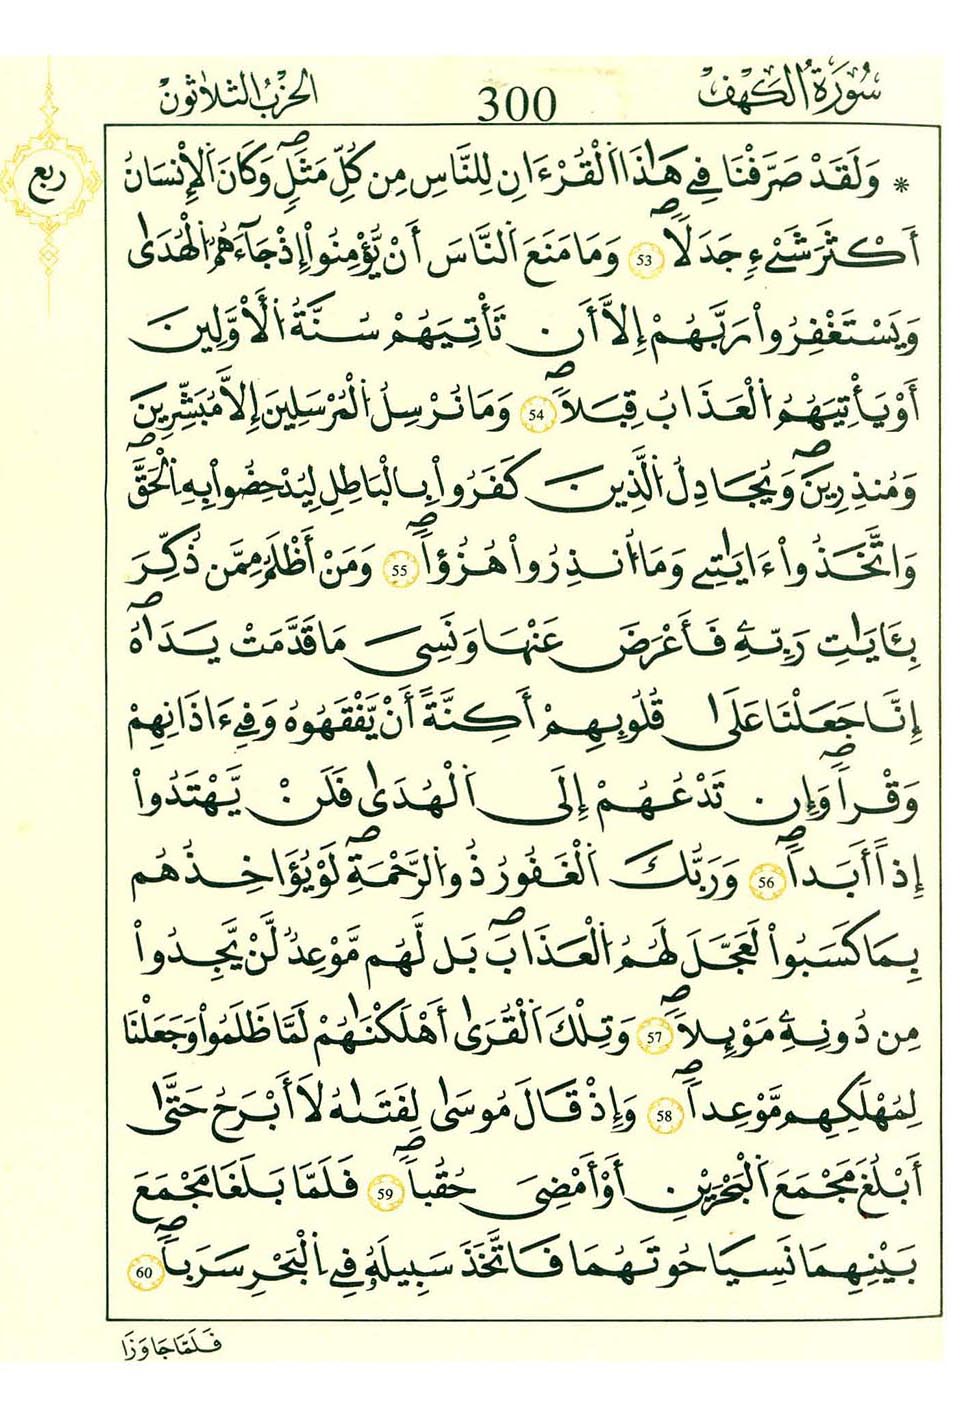 سُورَةُ الْكَهْفِ 300 الحِزْبُ الثَّلَاثُونَ
ربع
* وَلَقَدْ صَرَّفْنَا فِے هَٰذَا اَ۬لْقُرْءَانِ لِلنَّاسِ مِن كُلِّ مَثَلٖۖ وَكَانَ اَ۬لِانسَٰنُ
أَكْثَرَ شَےْءٖ جَدَلاٗۖ 53 وَمَا مَنَعَ اَ۬لنَّاسَ أَنْ يُّؤْمِنُوٓاْ إِذْ جَآءَهُمُ اُ۬لْهُدَىٰ
وَيَسْتَغْفِرُواْ رَبَّهُمْ إِلَّآ أَن تَأْتِيَهُمْ سُنَّةُ اُ۬لَاوَّلِينَ
أَوْ يَأْتِيَهُمُ اُ۬لْعَذَابُ قِبَلاٗۖ 54 وَمَا نُرْسِلُ اُ۬لْمُرْسَلِينَ إِلَّا مُبَشِّرِينَ
وَمُنذِرِينَۖ وَيُجَٰدِلُ اُ۬لذِينَ كَفَرُواْ بِالْبَٰطِلِ لِيُدْحِضُواْ بِهِ اِ۬لْحَقَّۖ
وَاتَّخَذُوٓاْ ءَايَٰتِے وَمَآ أُنذِرُواْ هُزُؤاٗۖ 55 وَمَنْ أَظْلَمُ مِمَّن ذُكِّرَ
بِـَٔايَٰتِ رَبِّهِۦ فَأَعْرَضَ عَنْهَا وَنَسِىَ مَا قَدَّمَتْ يَدَٰهُۖ
إِنَّا جَعَلْنَا عَلَىٰ قُلُوبِهِمْ أَكِنَّةً أَنْ يَّفْقَهُوهُ وَفِےٓ ءَاذَانِهِمْ
وَقْراٗۖ وَإِن تَدْعُهُمْ إِلَى اَ۬لْهُدَىٰ فَلَنْ يَّهْتَدُوٓاْ
إِذاً أَبَداٗۖ 56 وَرَبُّكَ اَ۬لْغَفُورُ ذُو اُ۬لرَّحْمَةِۖ لَوْ يُؤَاخِذُهُم
بِمَا كَسَبُواْ لَعَجَّلَ لَهُمُ اُ۬لْعَذَابَۖ بَل لَّهُم مَّوْعِدٞ لَّنْ يَّجِدُواْ
مِن دُونِهِۦ مَوْئِلاٗۖ 57 وَتِلْكَ اَ۬لْقُرَىٰٓ أَهْلَكْنَٰهُمْ لَمَّا ظَلَمُواْ وَجَعَلْنَا
لِمُهْلَكِهِم مَّوْعِداٗۖ 58 وَإِذْ قَالَ مُوسَىٰ لِفَتَىٰهُ لَآ أَبْرَحُ حَتَّىٰٓ
أَبْلُغَ مَجْمَعَ اَ۬لْبَحْرَيْنِ أَوَ اَمْضِىَ حُقُباٗۖ 59 فَلَمَّا بَلَغَا مَجْمَعَ
بَيْنِهِمَا نَسِيَا حُوتَهُمَا فَاتَّخَذَ سَبِيلَهُۥ فِے اِ۬لْبَحْرِ سَرَباٗۖ 60
فَلَمَّا جَاوَزَا